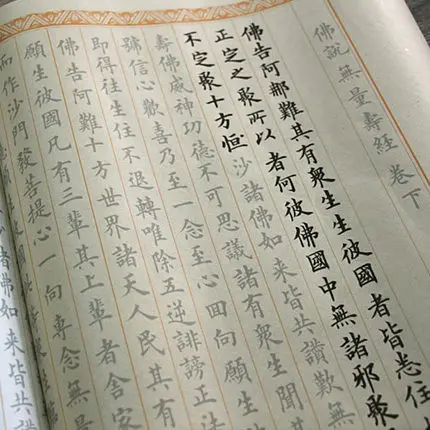 佛說無量壽經卷下
佛告阿難其有眾生生彼國者皆悉住
正定之聚所以者何彼佛國中無諸邪聚
不定聚十方恒沙諸佛如来皆共讚歎無
壽佛威神功德不可思議諸有眾生聞其
號信心歡喜乃至一念至心回向願生
即得往生住不退轉唯除五逆誹謗正法
佛告阿難十方世界諸天人民其有
願生彼國凡有三輩其上輩者舍家
而作沙門發菩提心一向專念無量
佛如来皆共讚